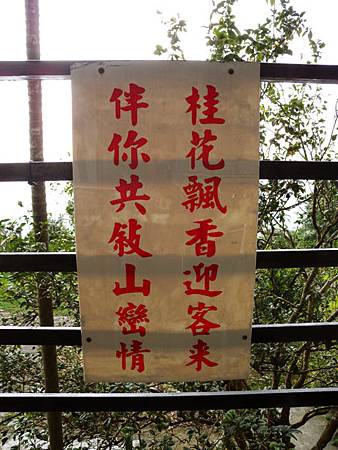 桂花飄香迎客来
伴你共敍山巒情